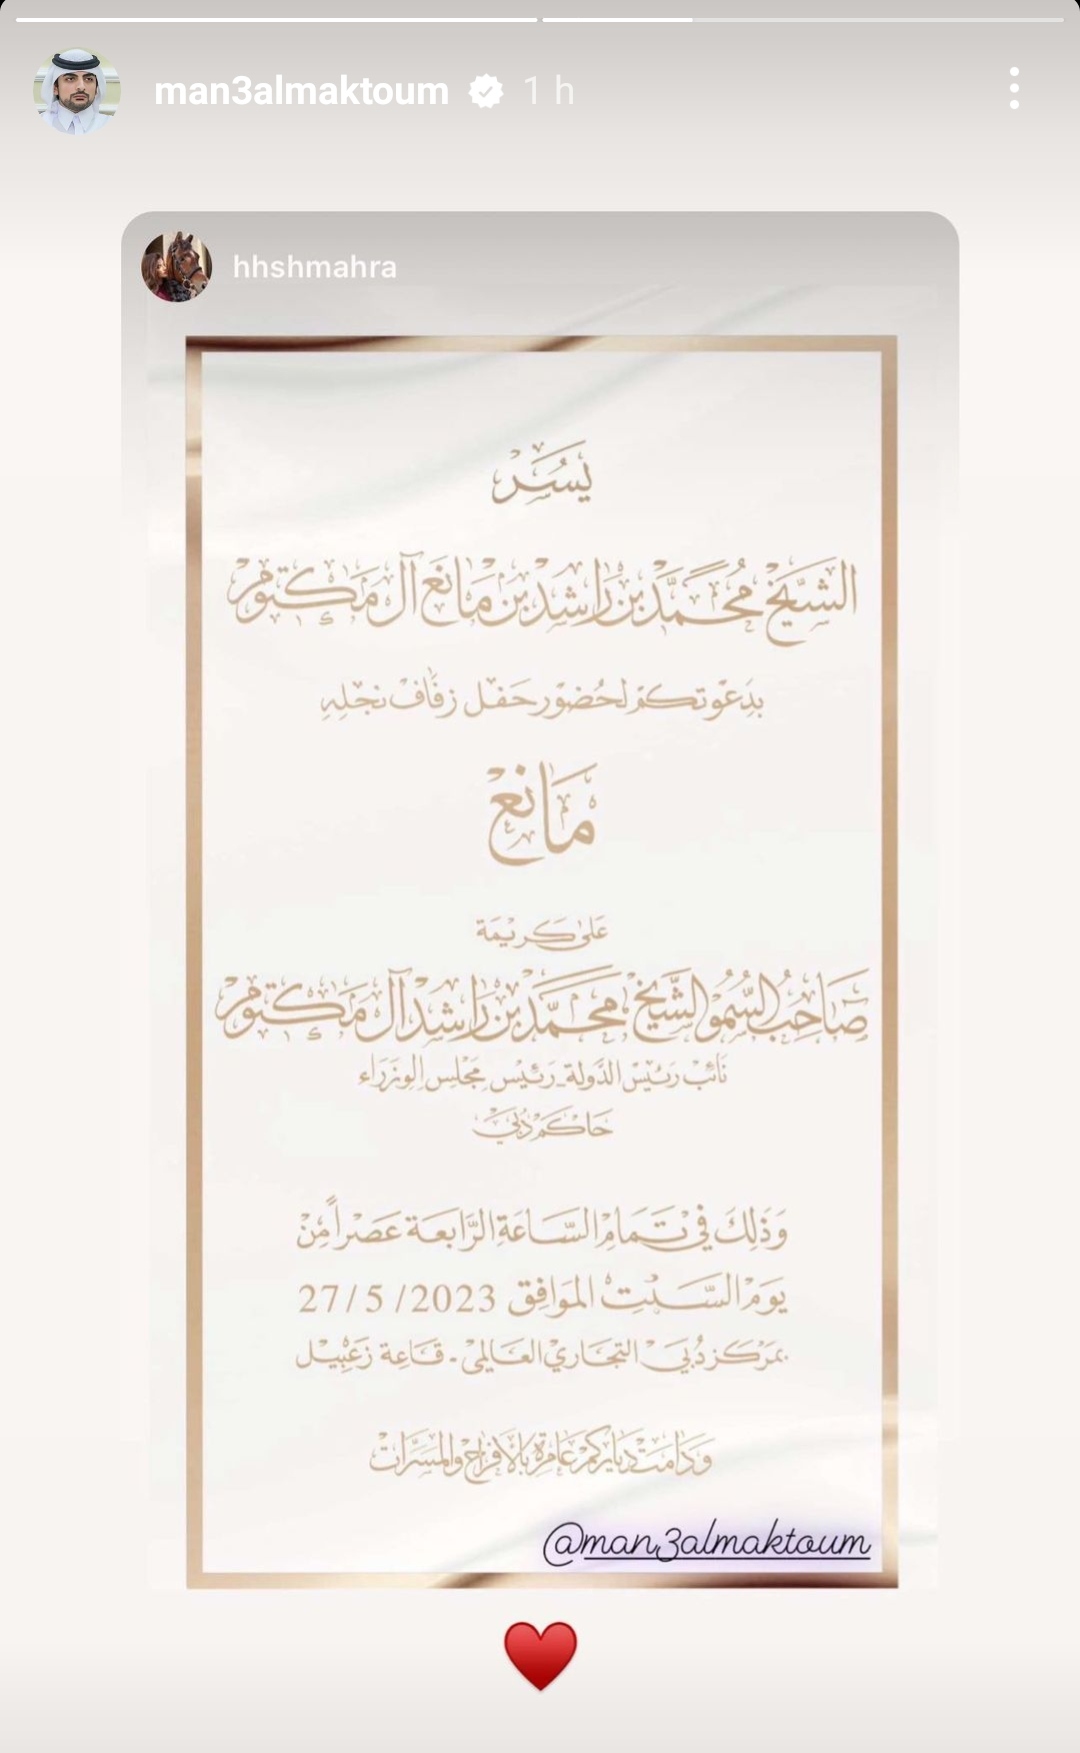 man3almaktoum 1 h
hhshmahra
يسر
الشيخ محمد بن راشد بن مانع آل مكتوم
بدعوتكم لحضور حفل زفاف نجله
مانع
على كريمة
صاحب السمو الشيخ محمد بن راشد آل مكتوم
نائب رئيس الدولة - رئيس مجلس الوزراء
حاكم دبي
وذلك في تمام الساعة الرابعة عصراً من
يوم السبت الموافق 27/5/2023
بمركز دبي التجاري العالمي - قاعة زعبيل
ودامت دياركم عامرة بالأفراح والمسرات
@man3almaktoum